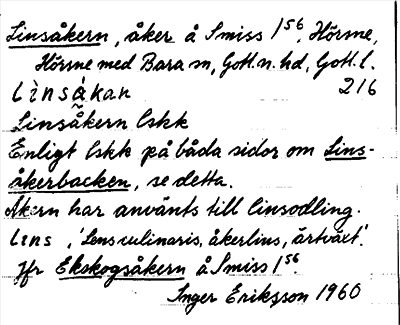 Linsåkern, åker å Smiss 1⁵⁶, Hörsne,
Hörsne med Bara sn, Gotl. n. hd, Gotl. l.
lìnså̀kan 216
Linsåkern Eskk
Enligt Eskk på båda sidor om Lins-
åkerbacken, se detta.
Åkern har använts till linsodling.
lins, 'Lens culinaris, åkerlins, ärtväxt'.
Jfr Ekskogsåkern å Smiss 1⁵⁶.
Inger Eriksson 1960